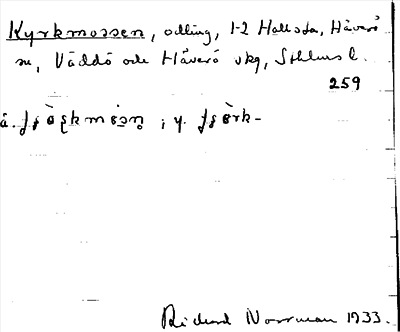 Kyrkmossen, odling, 1-2 Hallsta, Häverö
sn, Väddö och Häverö skg, Sthlms l.
259
ä. ; y.
Richard Norrman 1933.